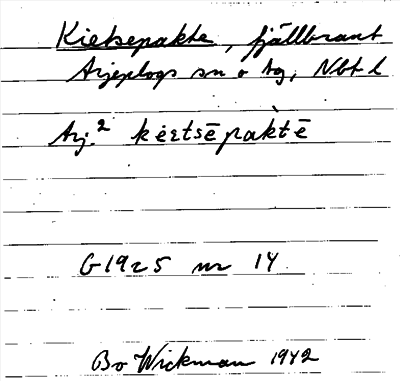 Kietsepakte, fjällbrant
Arjeplogs sn o tg, Nbt l
Arj.² kėrtsēpàktē
G1925 nr 14
Bo Wickman 1942